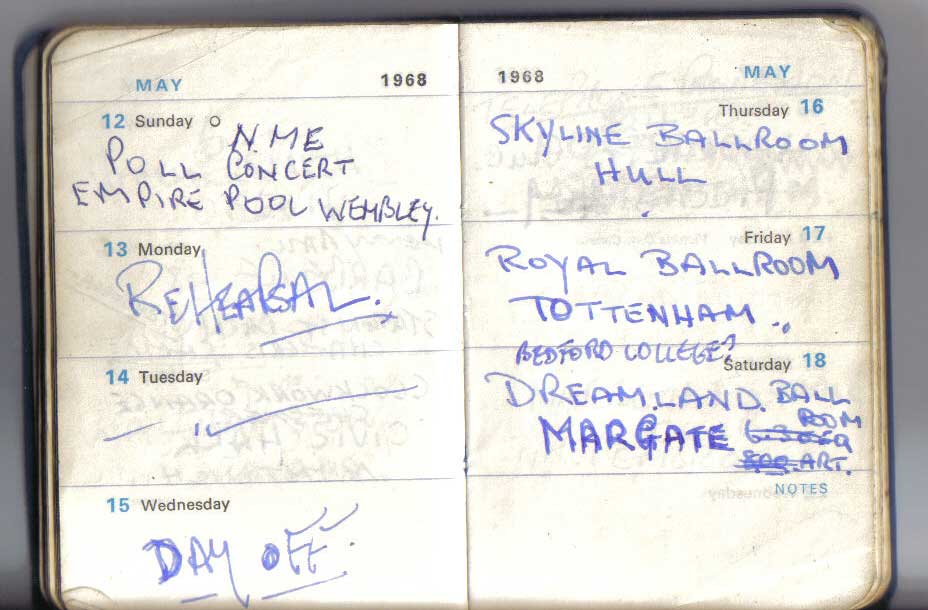 MAY 1968
12 Sunday
N.ME
POLL CONCERT
EMPIRE POOL WEMBLEY.
13 Monday
REHEARSAL.
14 Tuesday
15 Wednesday
DAY OFF.
1968 MAY
Thursday 16
SKYLINE BALLROOM
HULL
Friday 17
ROYAL BALLROOM
TOTTENHAM
BEDFORD COLLEGE?
Saturday 18
DREAMLAND. BALL
ROOM
MARGATE
ART.
NOTES